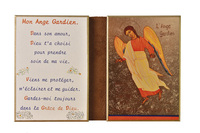 Mon Ange Gardien,
Dans son amour,
Dieu t'a choisi
pour prendre
soin de ma vie.
Viens me protéger,
m'éclairer et me guider.
Gardes-moi toujours
dans la Grâce de Dieu.
L'Ange
Gardien